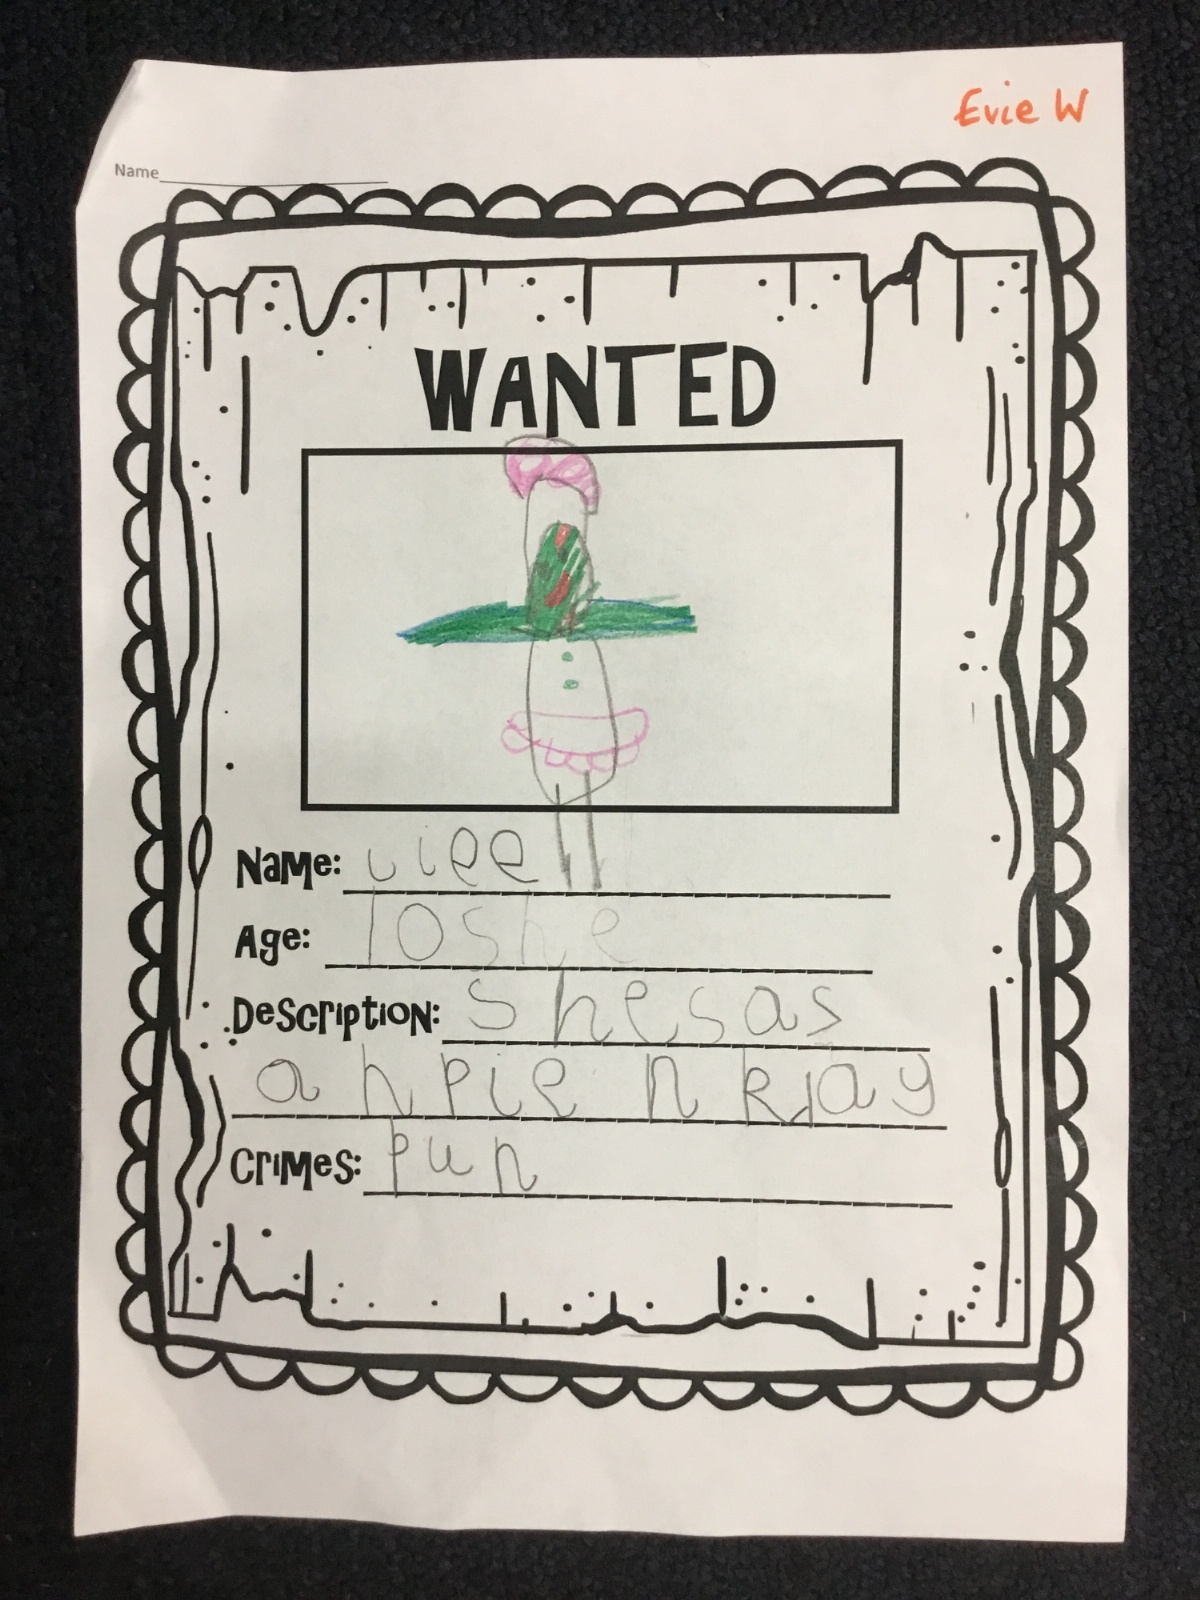 Evie W
Name
WANTED
Name: iiee
Age: 10she
Description: shesas
ahpie n kjay
Crimes: pun